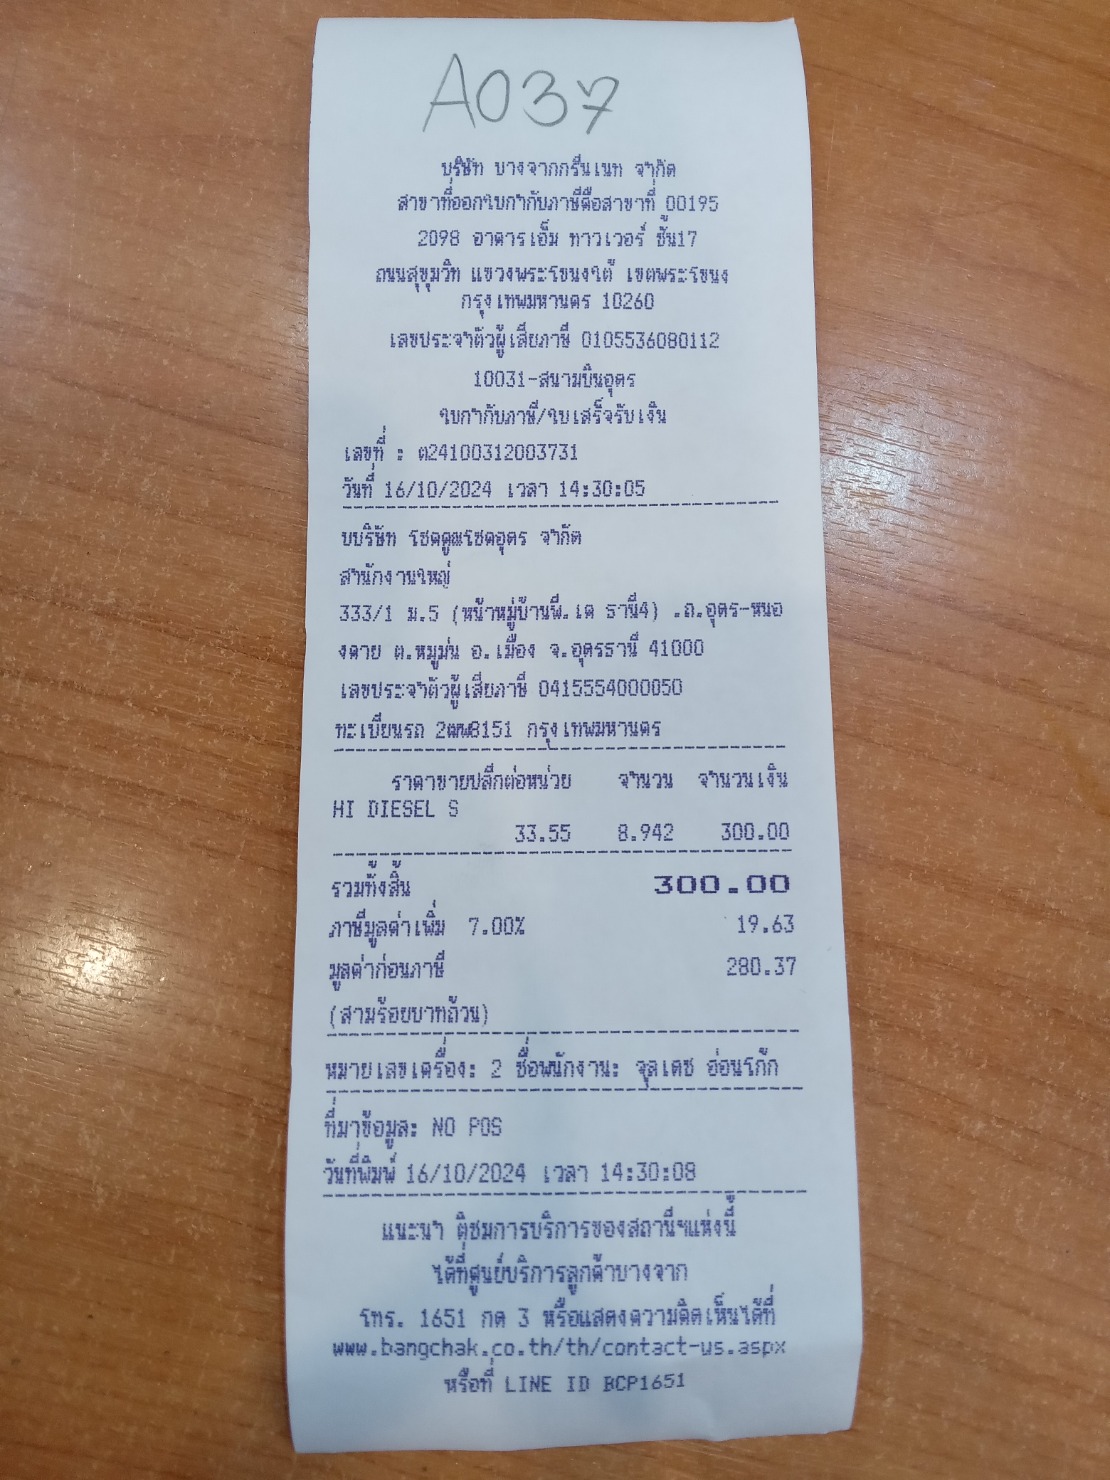 A037
บริษัท บางจากกรีนเนท จำกัด
สาขาที่ออกใบกำกับภาษีคือสาขาที่ 00195
2098 อาคารเอ็ม ทาวเวอร์ ชั้น17
ถนนสุขุมวิท แขวงพระโขนงใต้ เขตพระโขนง
กรุงเทพมหานคร 10260
เลขประจำตัวผู้เสียภาษี 0105536080112
10031-สนามบินอุดร
ใบกำกับภาษี/ใบเสร็จรับเงิน
เลขที่ : ต24100312003731
วันที่ 16/10/2024 เวลา 14:30:05
บบริษัท โชคคูณโชคอุดร จำกัด
สำนักงานใหญ่
333/1 ม.5 (หน้าหมู่บ้านพี.เค ธานี4) .ถ.อุดร-หนอ
งคาย ต.หมูม่น อ.เมือง จ.อุดรธานี 41000
เลขประจำตัวผู้เสียภาษี 0415554000050
ทะเบียนรถ กรุงเทพมหานคร
ราคาขายปลีกต่อหน่วย จำนวน จำนวนเงิน
HI DIESEL S
33.55 8.942 300.00
รวมทั้งสิ้น 300.00
ภาษีมูลค่าเพิ่ม 7.00% 19.63
มูลค่าก่อนภาษี 280.37
(สามร้อยบาทถ้วน)
หมายเลขเครื่อง: 2 ชื่อพนักงาน: จุลเดช อ่อนโก้ก
ที่มาข้อมูล: NO POS
วันที่พิมพ์ 16/10/2024 เวลา 14:30:08
แนะนำ ติชมการบริการของสถานีฯแห่งนี้
ได้ที่ศูนย์บริการลูกค้าบางจาก
โทร. 1651 กด 3 หรือแสดงความคิดเห็นได้ที่
www.bangchak.co.th/th/contact-us.aspx
หรือที่ LINE ID BCP1651